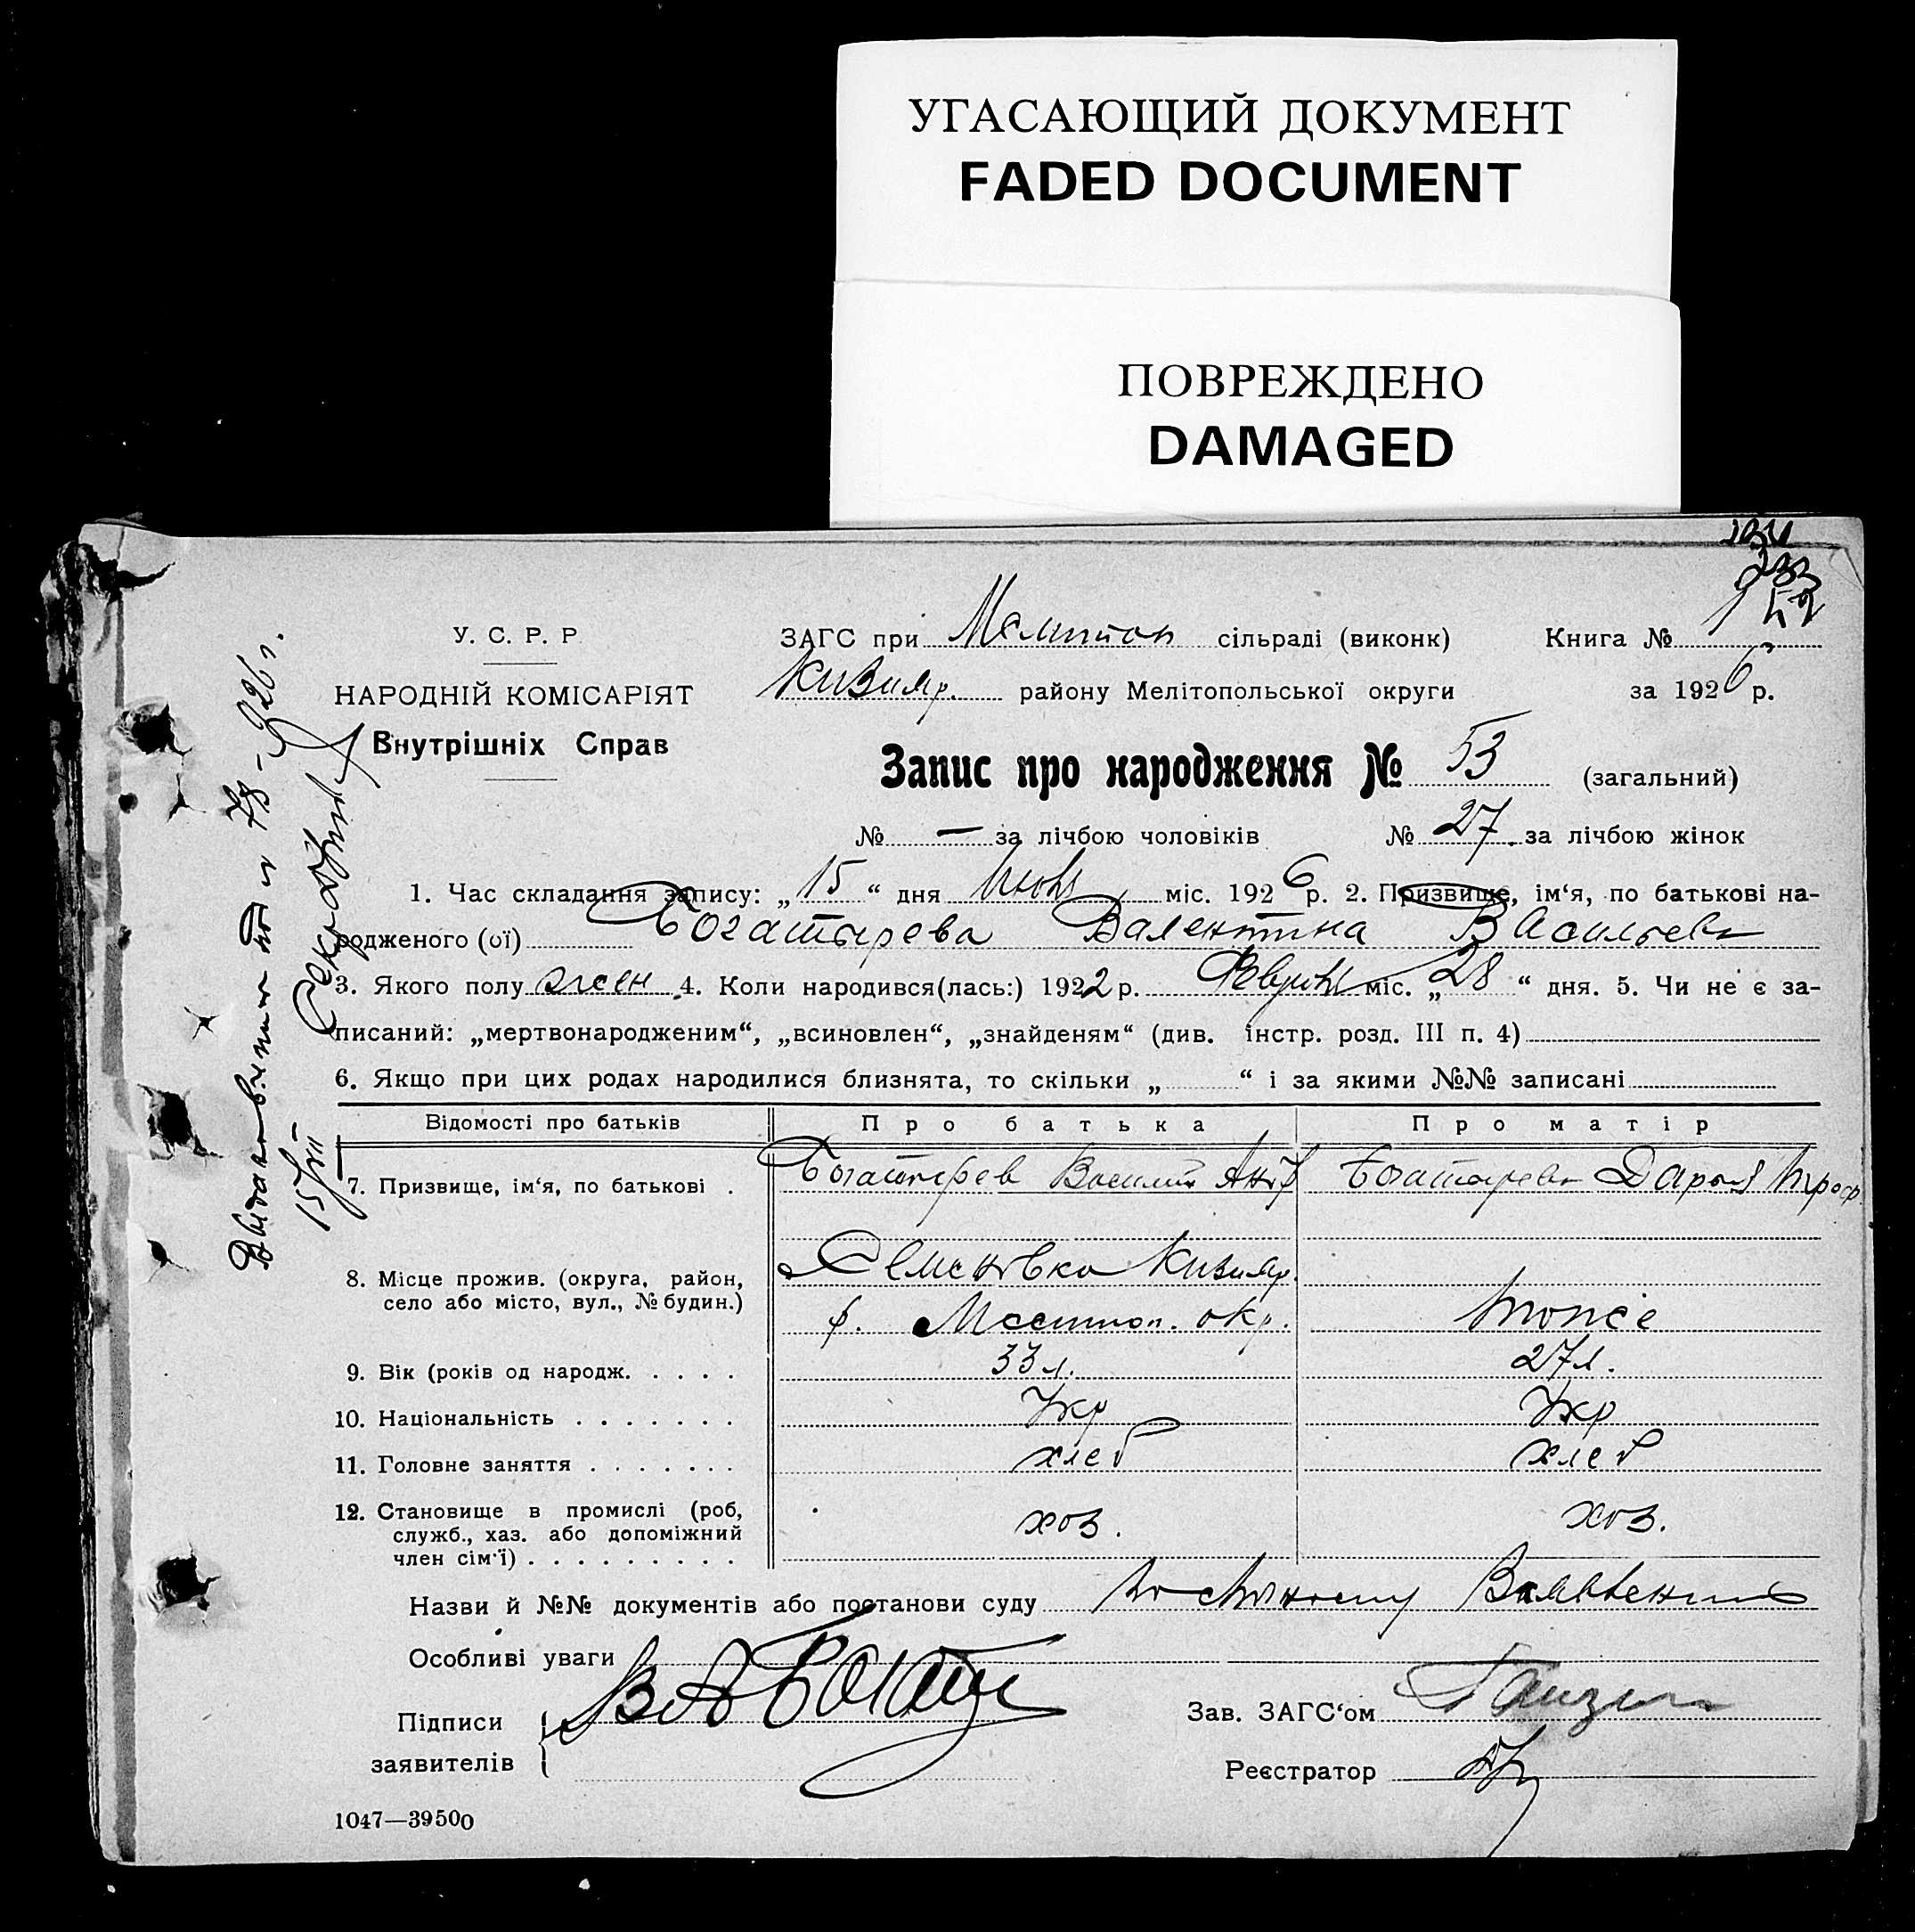 УГАСАЮЩИЙ ДОКУМЕНТ
FADED DOCUMENT
ПОВРЕЖДЕНО
DAMAGED
У. С. Р. Р
НАРОДНІЙ КОМІСАРІЯТ
Внутрішніх Справ
ЗАГС при Мелитоп сільраді (виконк) Книга №
Кизияр. району Мелітопольської округи за 1926 р.
Запис про народження № 53 (загальний)
№ — за лічбою чоловіків № 27. за лічбою жінок
1. Час складання запису: „ 15 “ дня Июня міс. 1926 р. 2. Призвище, ім‘я, по батькові на-
родженого (ої) Богатырева Валентина Васильевн
3. Якого полу жен 4. Коли народився(лась:) 1922 р. Февраля міс. „ 28 “ дня. 5. Чи не є за-
писаний: „мертвонародженим“, „всиновлен“, „знайденям“ (див. інстр. розд. III п. 4)
6. Якщо при цих родах народилися близнята, то скільки „ “ і за якими №№ записані
Відомості про батьків Про батька Про матір
7. Призвище, ім‘я, по батькові . Богатырев Василий Богатырева Дарья
8. Місце прожив. (округа, район,
село або місто, вул., № будин.)
Семеновка Кизияр.
р. Мелитоп. окр.
9. Вік (років од народж. . . . . 33 л. 27 л.
10. Національність . . . . . . . Укр Укр
11. Головне заняття . . . . . . . хлеб хлеб
12. Становище в промислі (роб,
служб., хаз. або допоміжний
член сім‘ї) . . . . . . . . . хоз. хоз.
Назви й №№ документів або постанови суду
Особливі уваги
Підписи
заявителів
Зав. ЗАГС‘ом
Реєстратор
1047—39500